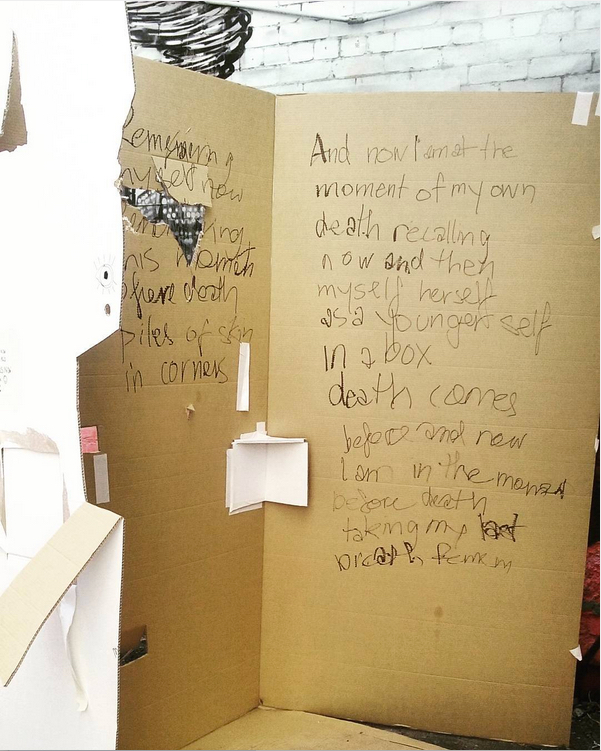 Remembering
myself now
remembering
this moment
before death
piles of skin
in corners
And now I am at the
moment of my own
death recalling
now and then
myself herself
as a younger self
in a box
death comes
before and now
I am in the moment
before death
taking my last
breath